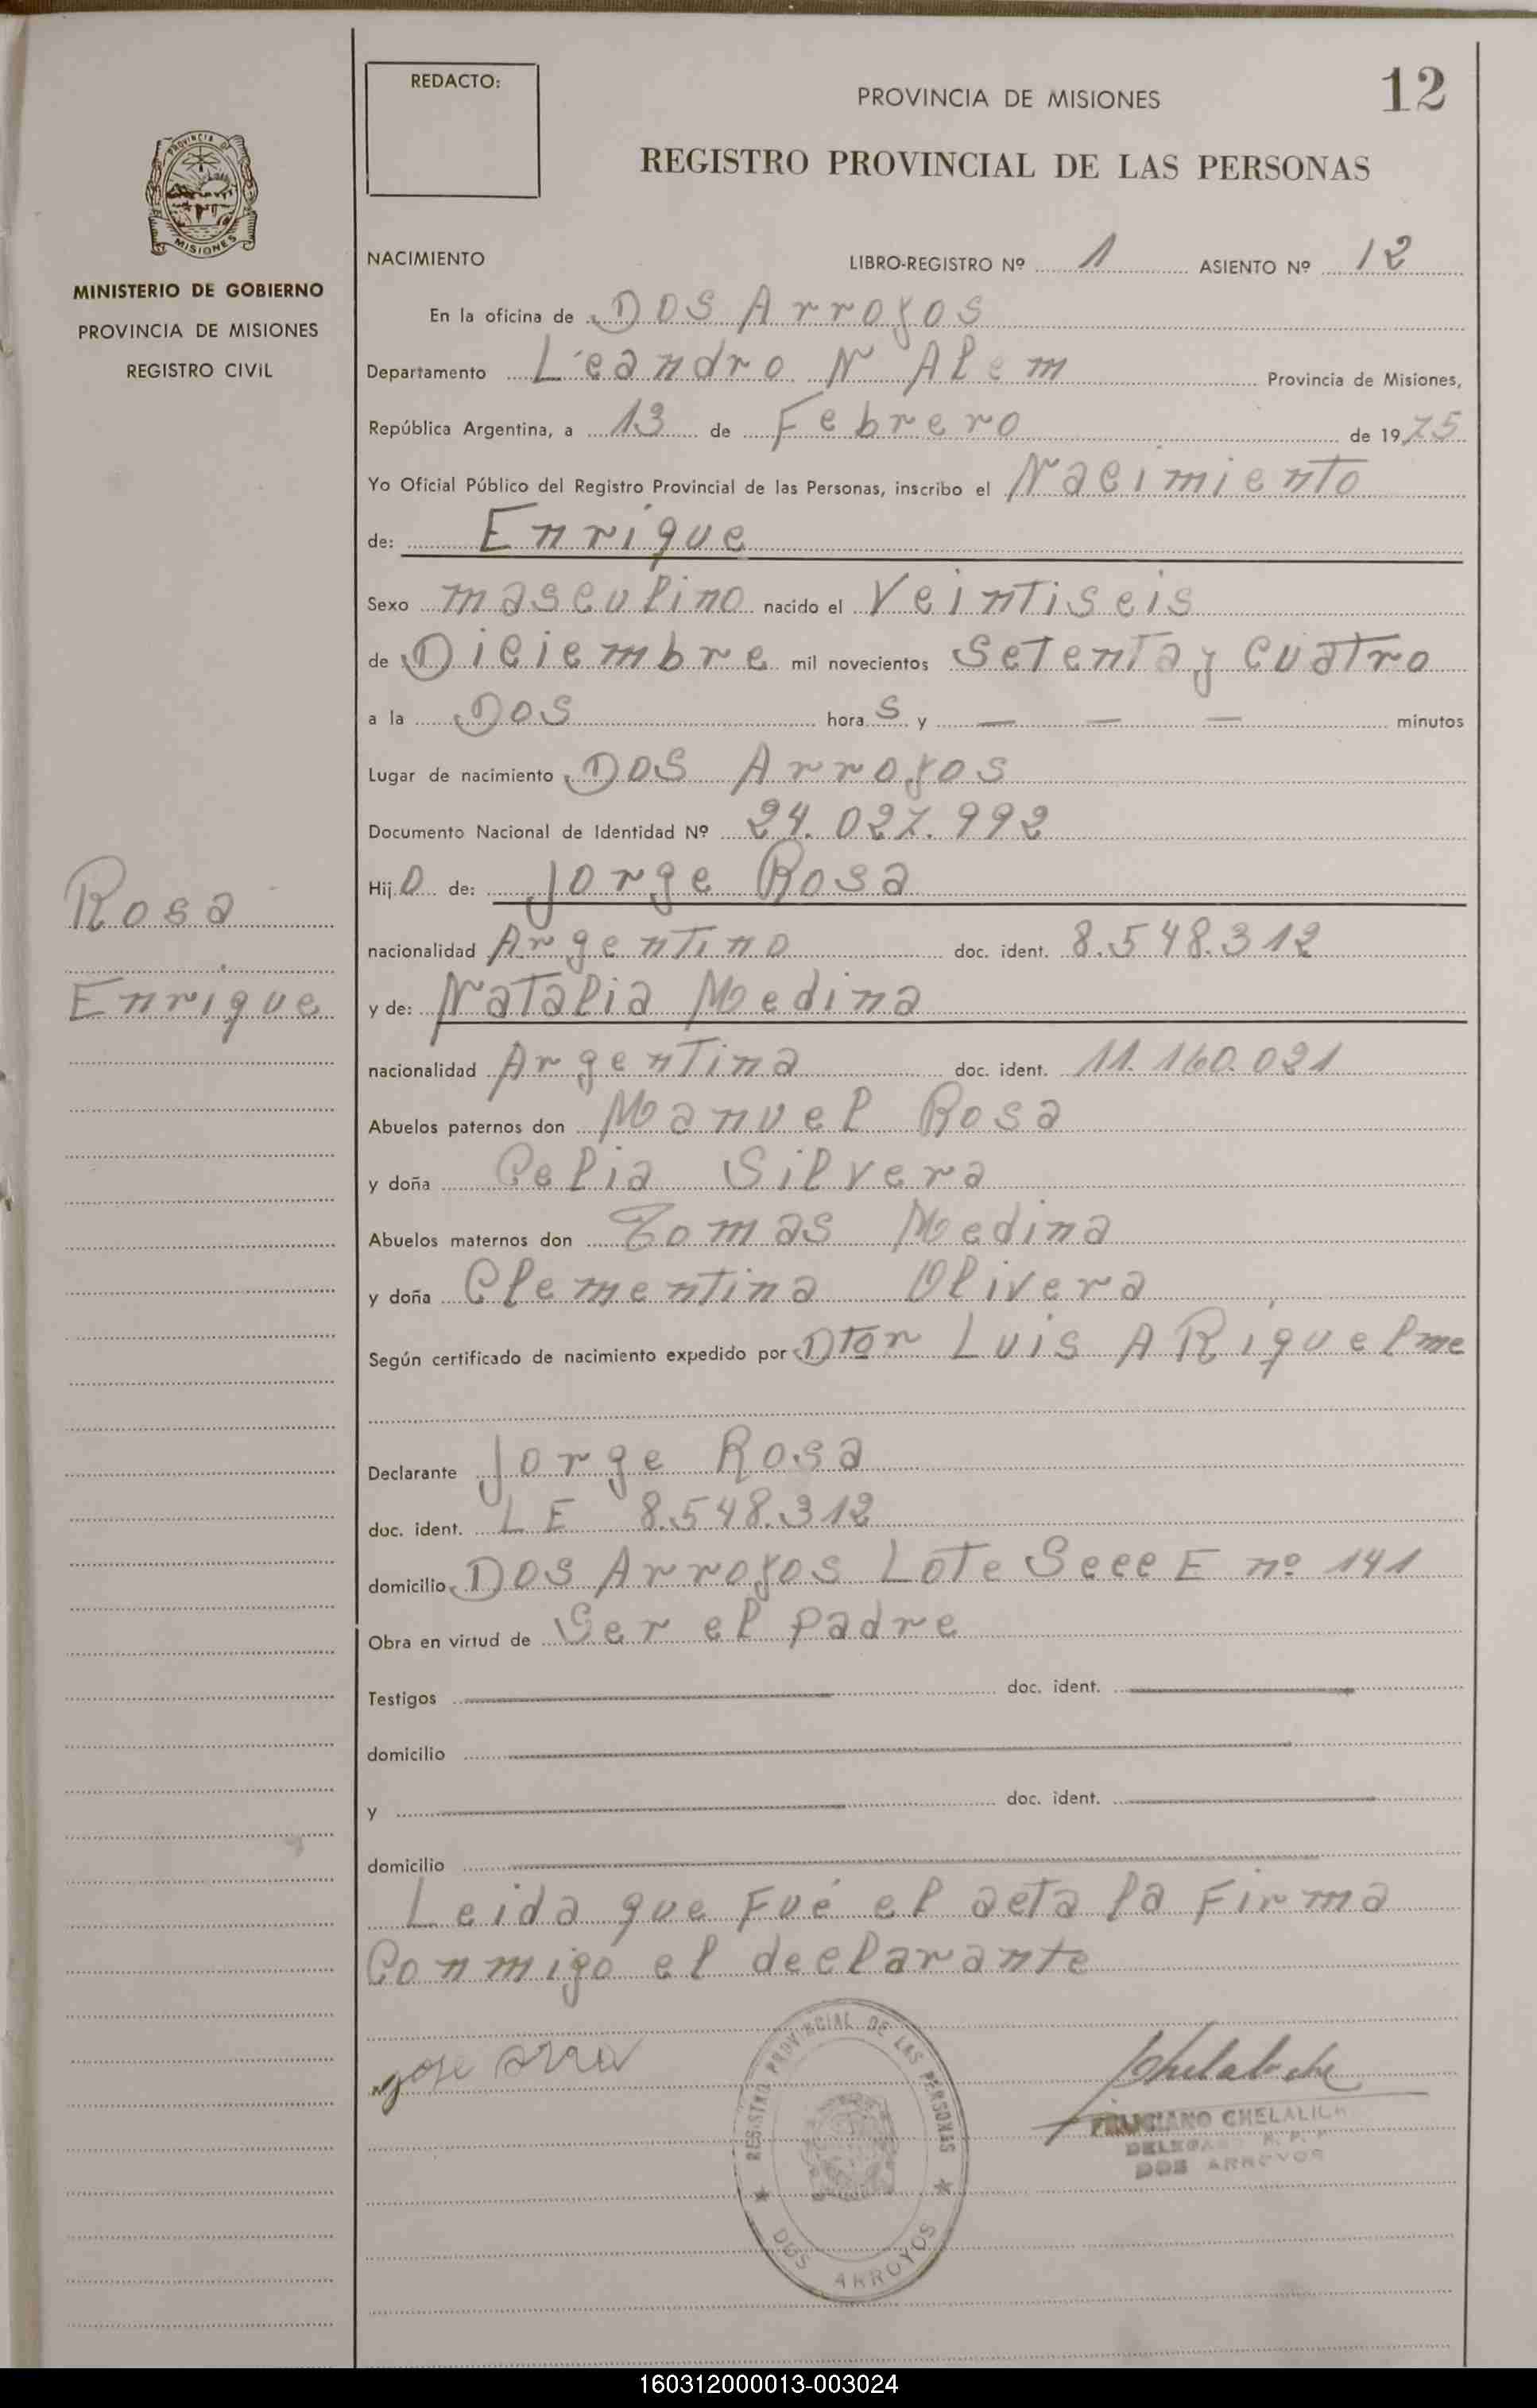 REDACTO:
PROVINCIA DE MISIONES
12
REGISTRO PROVINCIAL DE LAS PERSONAS
PROVINCIA DE
MISIONES
MINISTERIO DE GOBIERNO
PROVINCIA DE MISIONES
REGISTRO CIVIL
NACIMIENTO LIBRO-REGISTRO Nº 1 ASIENTO Nº 12
En la oficina de Dos Arroyos
Departamento Leandro N Alem Provincia de Misiones,
República Argentina, a 13 de Febrero de 1975
Yo Oficial Público del Registro Provincial de las Personas, inscribo el Nacimiento
de: Enrique
Sexo masculino nacido el Veintiseis
de Diciembre mil novecientos Setenta y Cuatro
a la Dos horas y — — — minutos
Lugar de nacimiento Dos Arroyos
Documento Nacional de Identidad Nº 24.027.992
Hijo de: Jorge Rosa
Rosa
nacionalidad Argentino doc. ident. 8.548.312
Enrique
y de: Natalia Medina
nacionalidad Argentina doc. ident. 11.160.021
Abuelos paternos don Manuel Rosa
y doña Celia Silvera
Abuelos maternos don Tomas Medina
y doña Clementina Olivera
Según certificado de nacimiento expedido por Dtor Luis A Riquelme
Declarante Jorge Rosa
doc. ident. LE 8.548.312
domicilio Dos Arroyos Lote Secc E nº 141
Obra en virtud de Ser el padre
Testigos doc. ident.
domicilio
y doc. ident.
domicilio
Leida que Fué el acta la Firma
Conmigo el declarante
REGISTRO PROVINCIAL DE LAS PERSONAS
DOS ARROYOS
FELICIANO
DOS ARROYOS
160312000013-003024